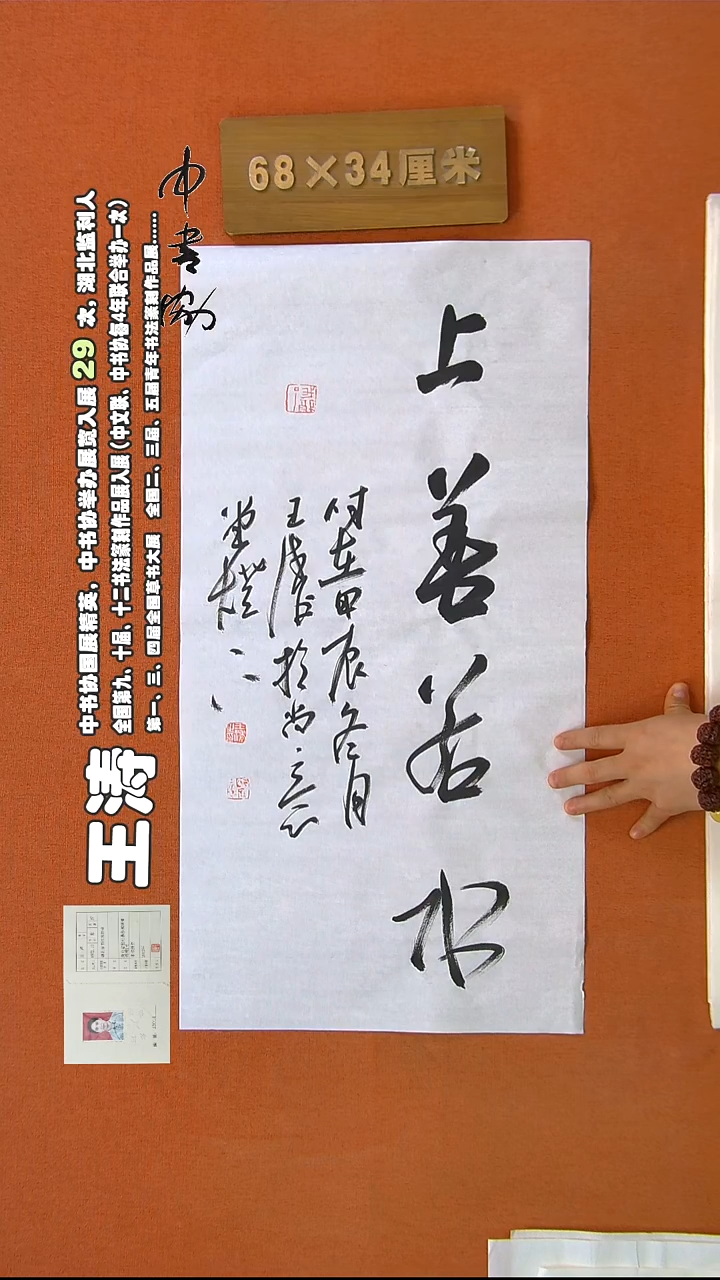 68×34厘米
中书协
中书协国展精英，中书协举办展览入展 29 次，湖北监利人
全国第九、十届、十二书法篆刻作品展入展（中文联、中书协每4年联合举办一次）
第一、三、四届全国草书大展 全国二、三届、五届青年书法篆刻作品展......
王涛
上善若水
时在甲辰冬月
王涛於尚意